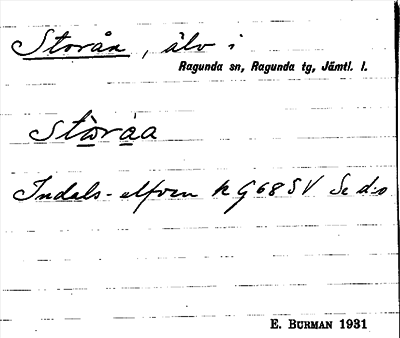 Storån, älv i
Ragunda sn, Ragunda tg, Jämtl. l.
Indals-elfven k G68SV Se d:o
E. BURMAN 1931